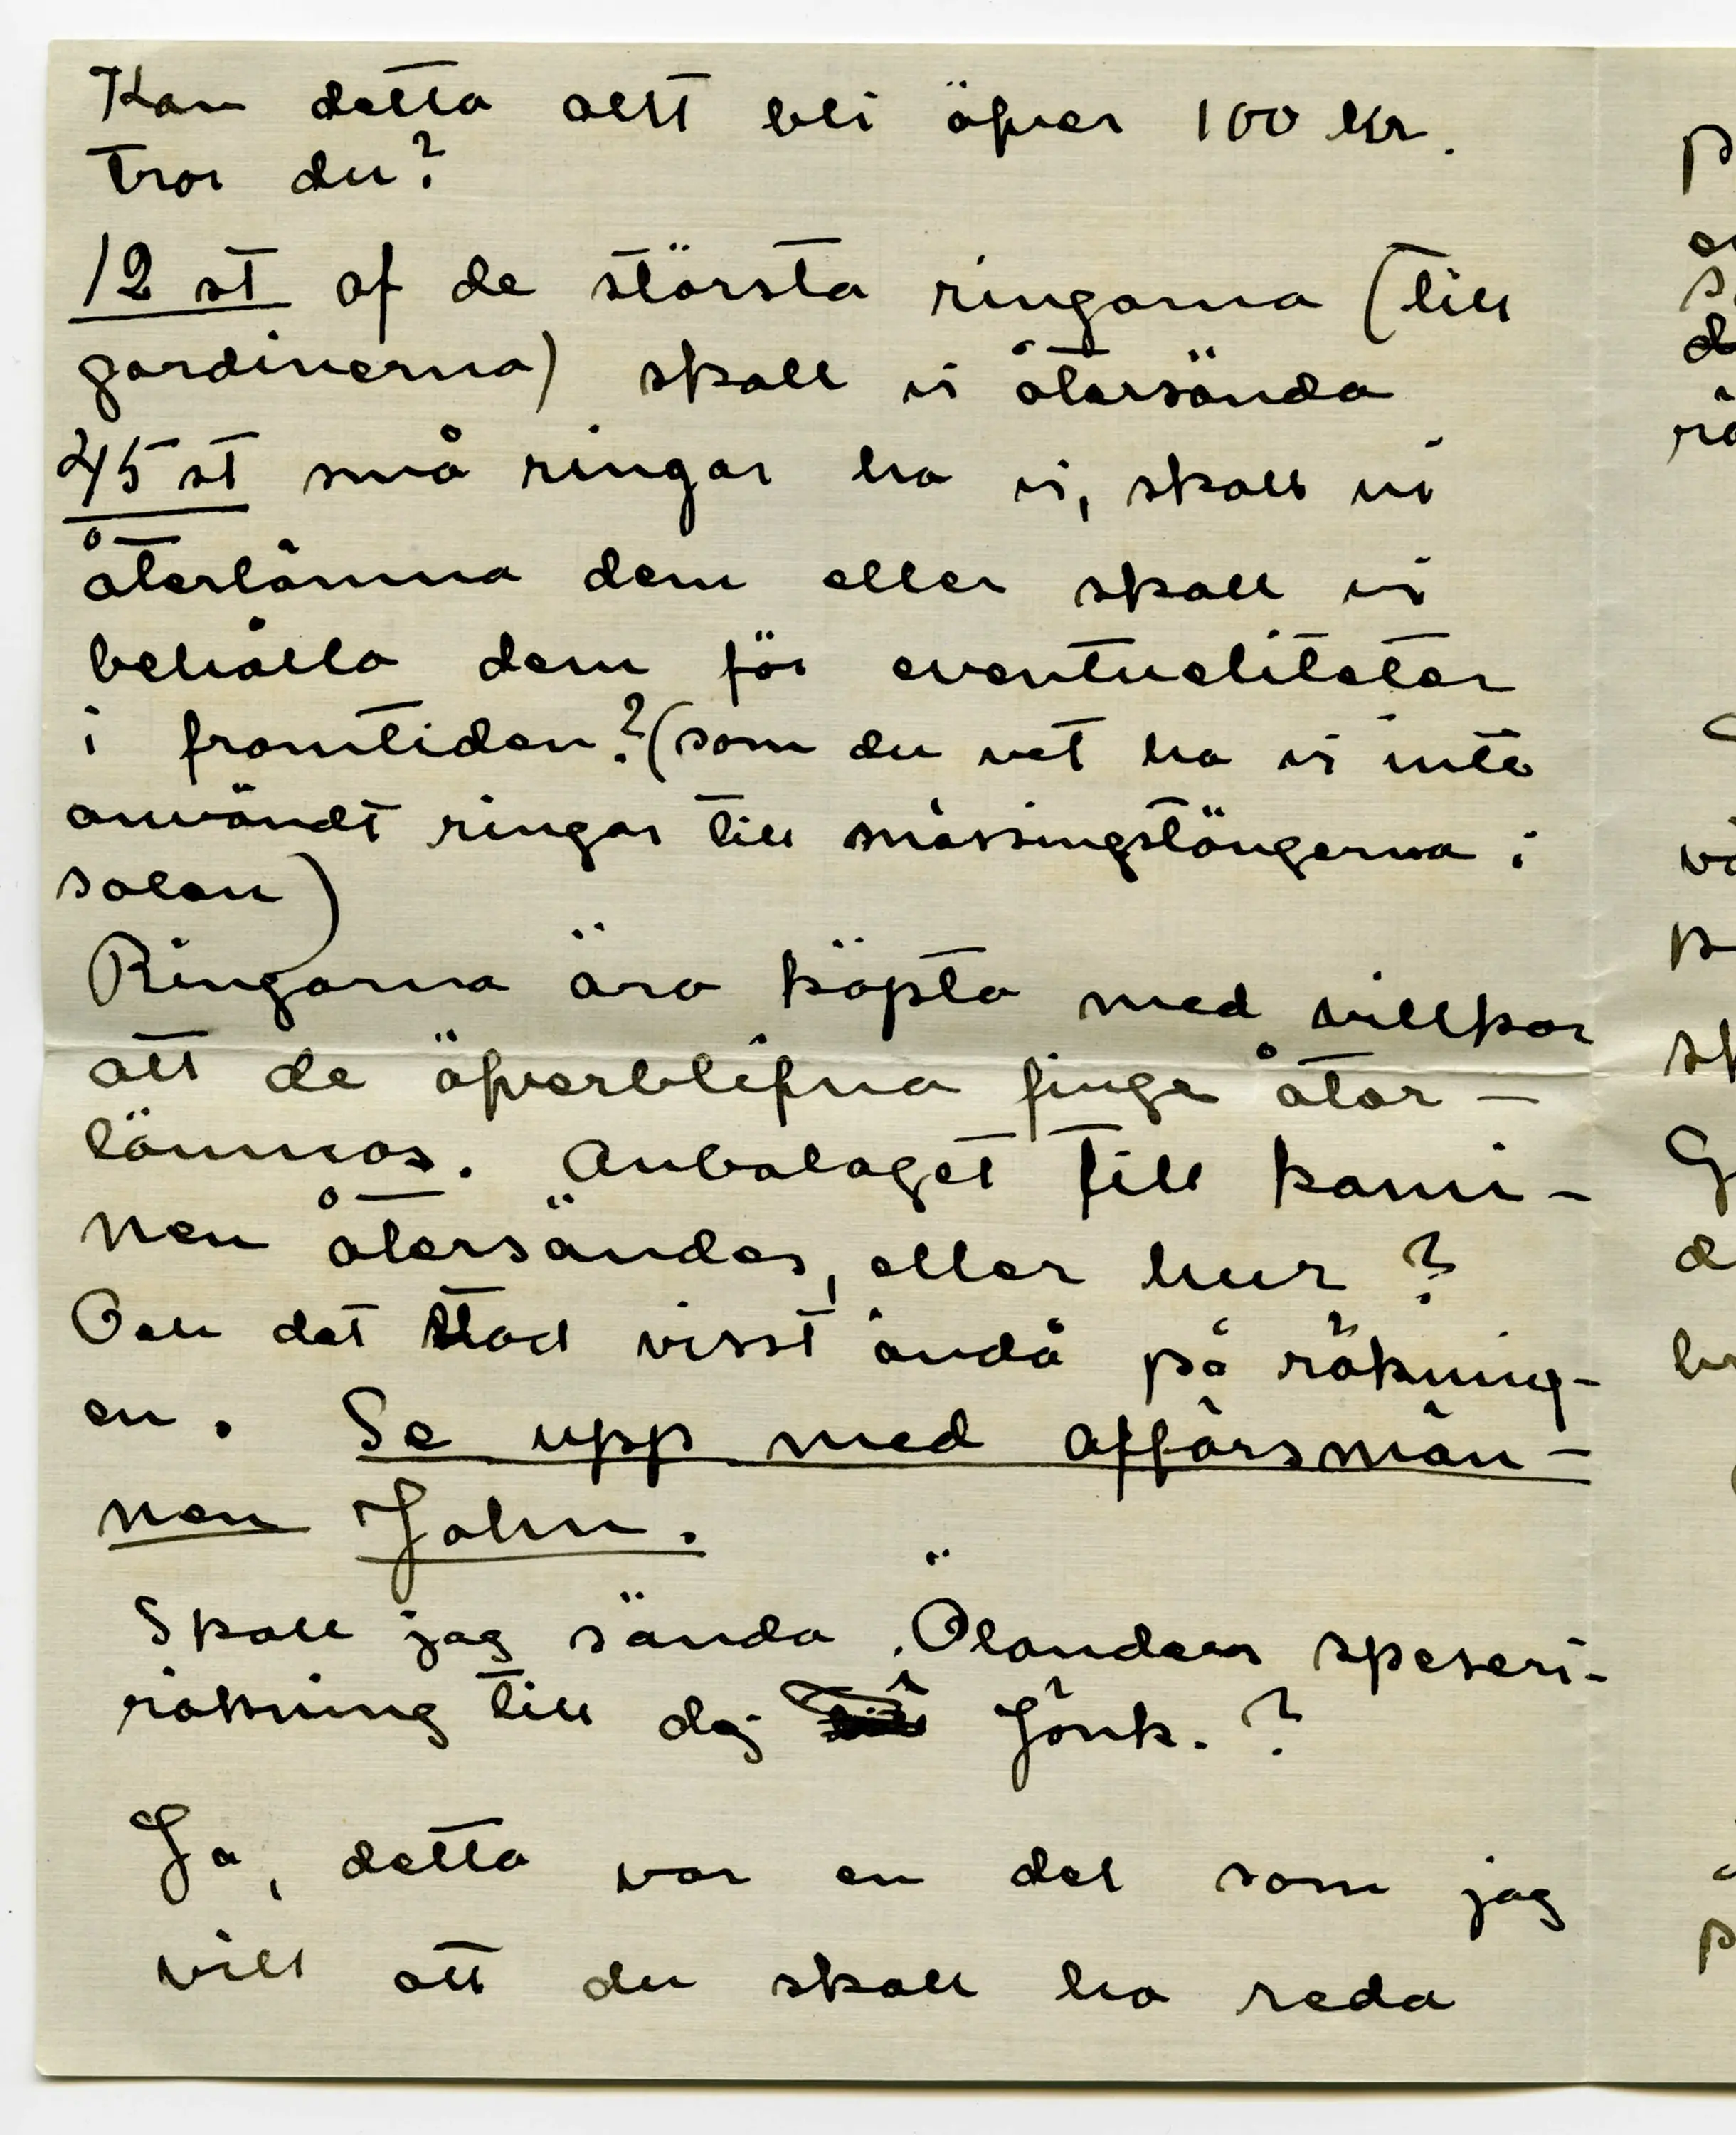 Kan detta allt bli öfver 100 kr.
tror du?
12 st af de största ringarna (till
gardinerna) skall vi återsända
45 st små ringar ha vi, skall vi
återlämna dem eller skall vi
behålla dem för eventueliteter
i framtiden? (som du vet ha vi inte
användt ringar till mässingstängerna i
salen)
Ringarna äro köpta med villkor
att de öfverblifna finge åter-
lämnas. Anbalaget till kami-
nen återsändes, eller hur?
Och det stod visst ändå på räkning-
en. Se upp med affärsmän-
nen John.
Skall jag sända Ölanders speseri-
räkning till dej i Jönk.?
Ja, detta var en del som jag
vill att du skall ha reda